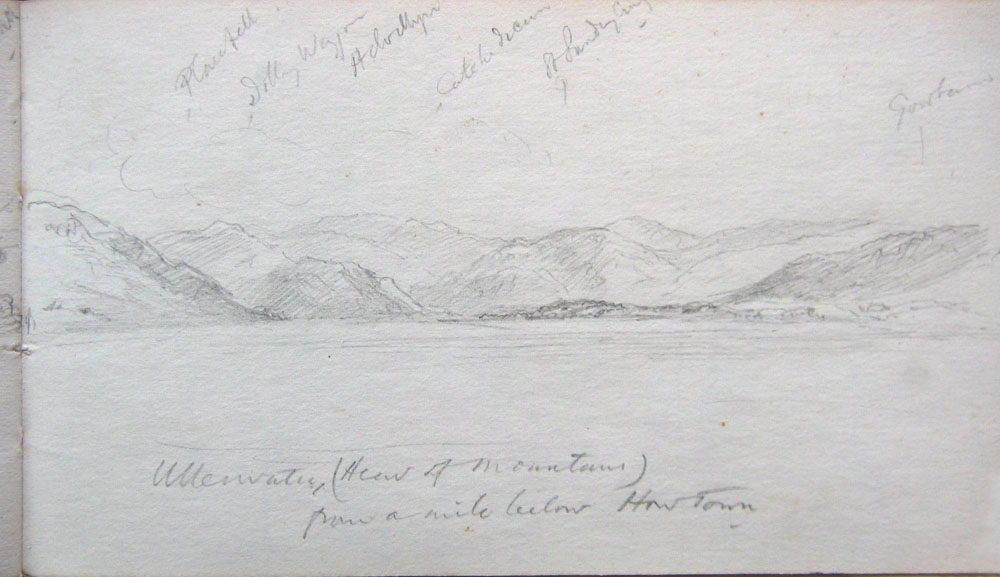 Place Fell
Dolly Waggon
Helvellyn
Catchedecam
St Sunday Crag
Gowbarrow
Ulleswater, (Head of Mountains)
from a mile below How Town